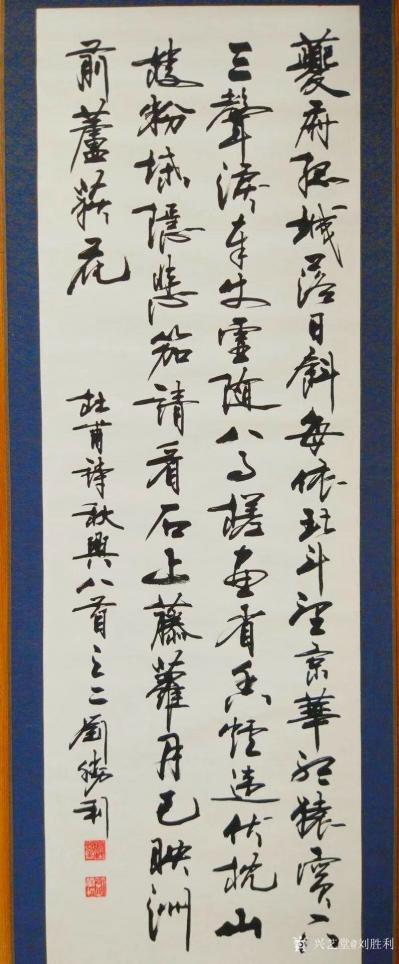 夔府孤城落日斜每依北斗望京華聽猿實下
三聲淚奉使虛隨八月槎畫省香爐違伏枕山
樓粉堞隱悲笳請看石上藤蘿月已映洲
前蘆荻花
杜甫詩秋興八首之二劉勝利
兴艺堂@刘胜利